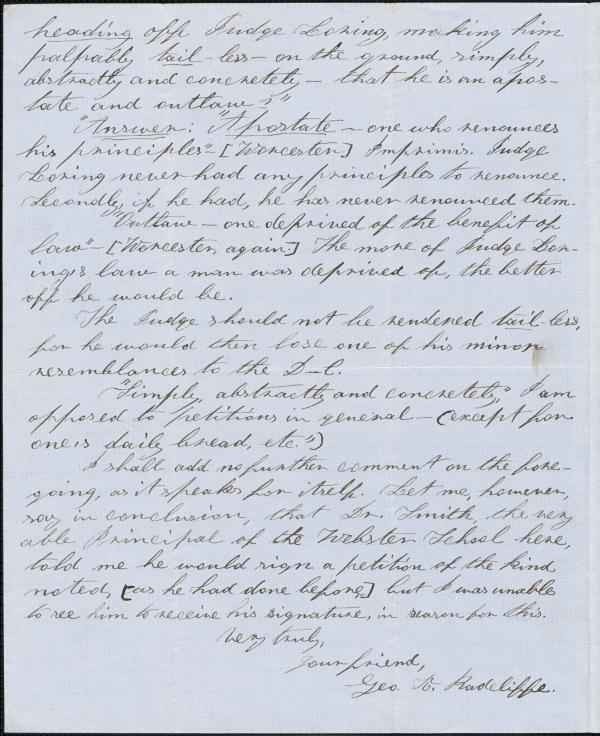 heading off Judge Loring, making him
palpably tail-less - on the ground, simply,
abstractly and concretely - that he is an apos-
tate and outlaw?"
"Answer: "Apostate - one who renounces
his principles" - [Worcester.] Imprimis. Judge
Loring never had any principles to renounce.
Secondly, if he had, he has never renounced them.
"Outlaw - one deprived of the benefit of
law" - [Worcester, again.] The more of Judge Lor-
ing's law a man was deprived of, the better
off he would be.
The Judge should not be rendered tail-less,
for he would then lose one of his minor
resemblances to the D-l.
"Simply, abstractly and concretely," I am
opposed to petitions in general - (except for
one's daily bread, etc.")
I shall add no further comment on the fore-
going, as it speaks for itself. Let me, however,
say in conclusion, that Dr. Smith, the very
able Principal of the Webster School here,
told me he would sign a petition of the kind
noted, [as he had done before,] but I was unable
to see him to receive his signature, in season for this.
Very truly,
Your friend,
Geo. Radcliffe.